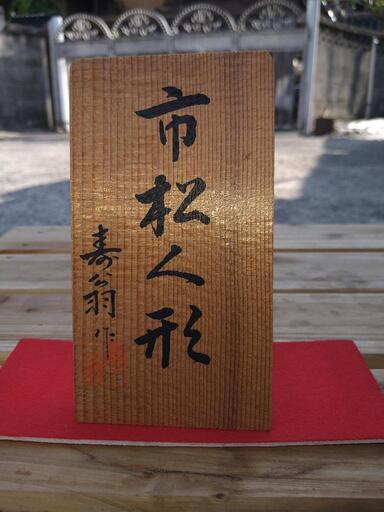 市松人形
寿翁作